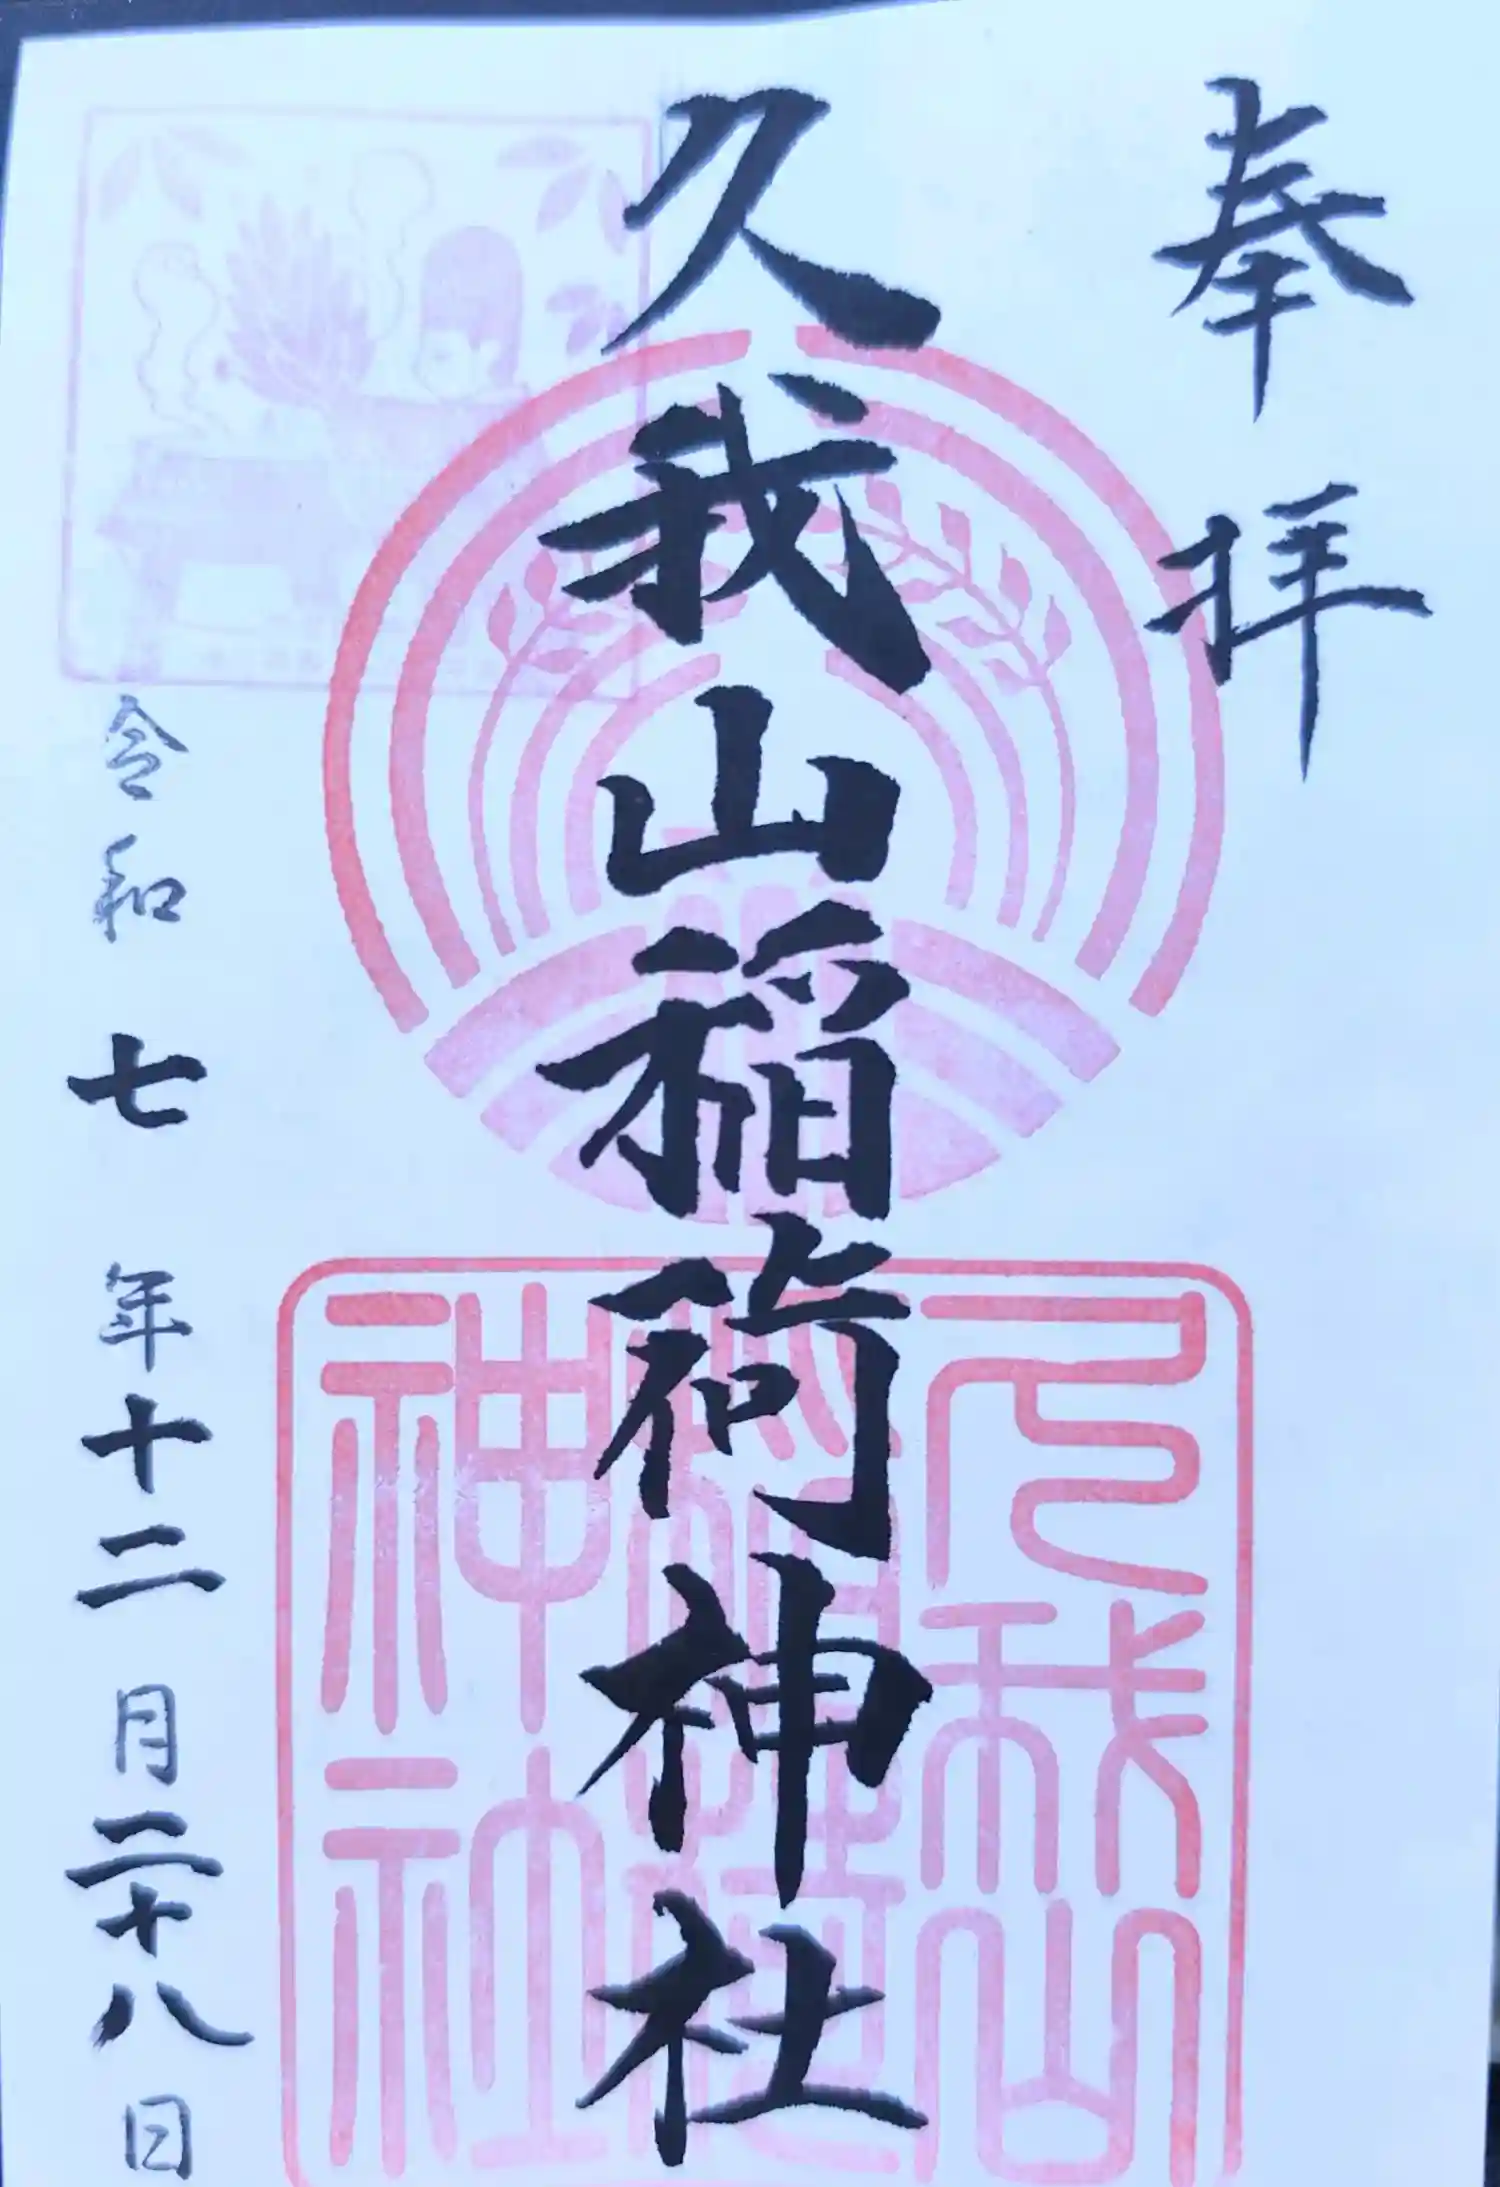 奉拝
久我山稲荷神社
久我山
稲荷
神社
令和七年十二月二十八日